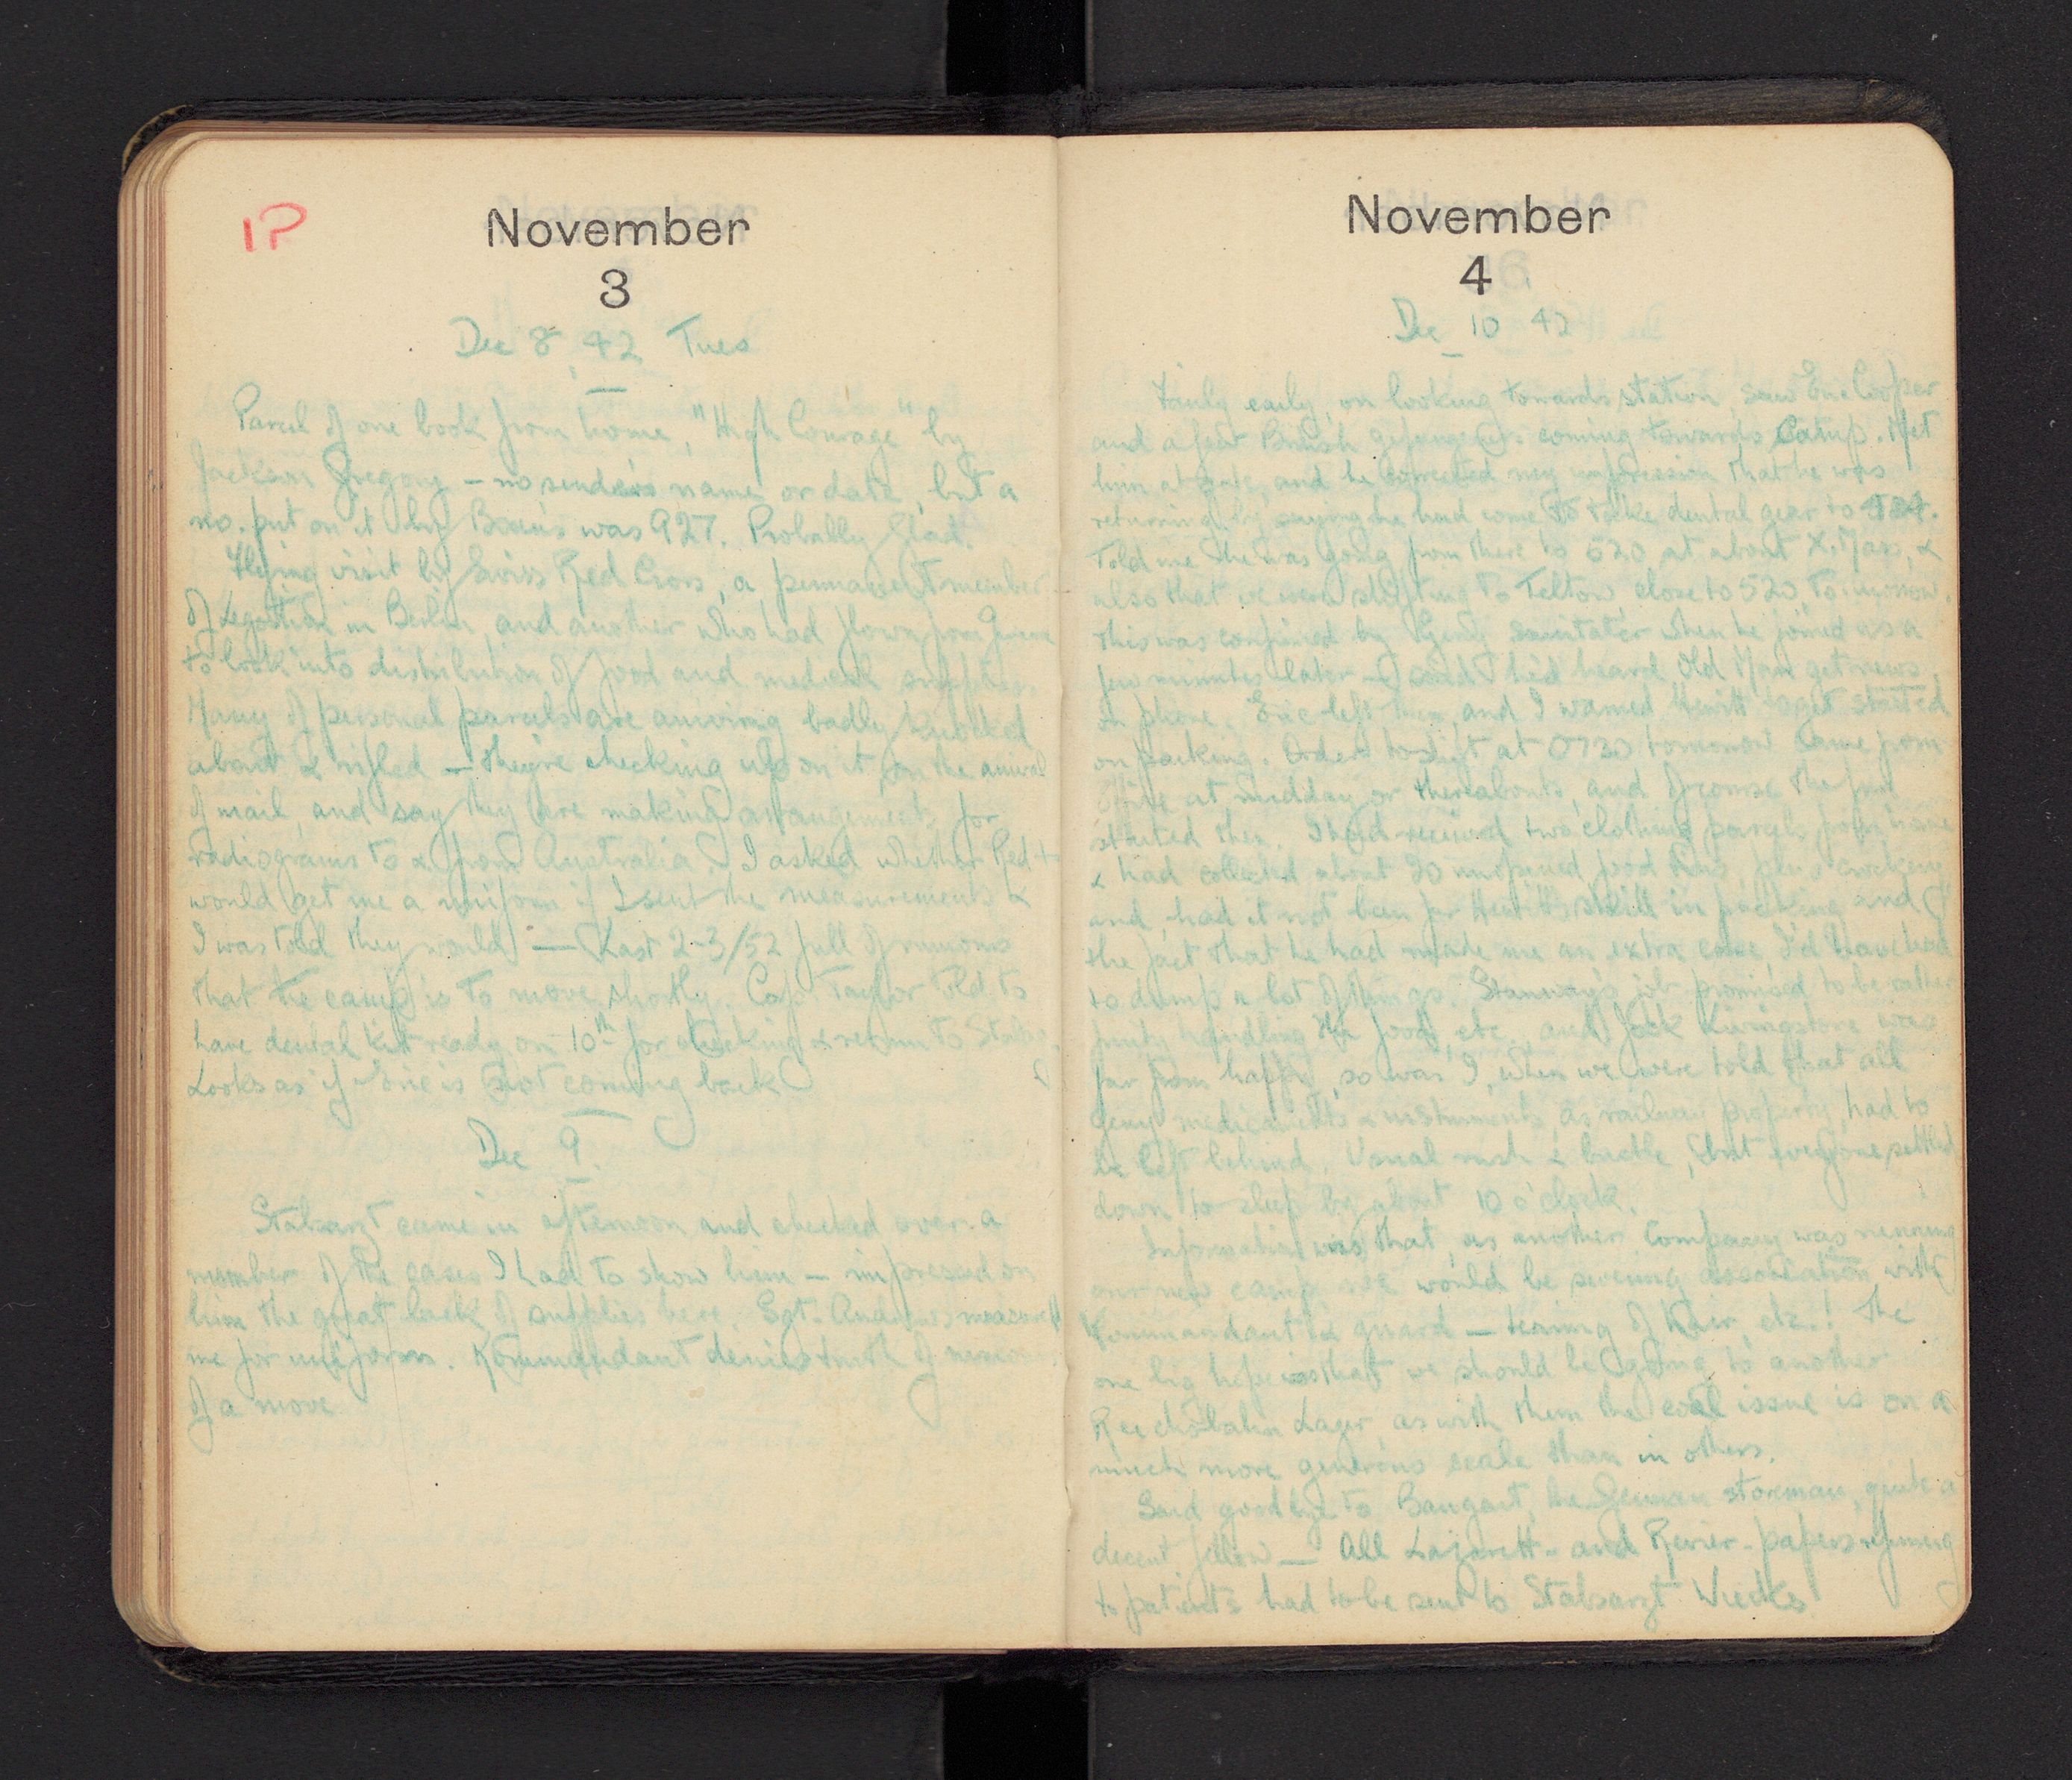 1P
November
3
Dec 8 42 Tues
Parcel of one book from home, "High Courage" by
Jackson Gregory – no sender's name or date, but a
no. put on it by Boxes was 927. Probably Glad.
Flying visit by Swiss Red Cross, a permanent member
of Legation in Berlin, and another who had flown from Geneva
to look into distribution of food and medical supplies.
Many of personal parcels are arriving badly knocked
about & rifled – they're checking up on it, on the arrival
of mail, and say they are making arrangements for
radiograms to & from Australia. I asked whether Red +
would get me a uniform if I sent the measurements &
I was told they would — Last 2-3/52 full of rumours
that the camp is to move shortly. Capt. Taylor told to
have dental kit ready on 10th for checking & return to Stalag.
Looks as if Eric is not coming back
Dec 9.
Stabsarzt came in afternoon and checked over a
number of the cases I had to show him – impressed on
him the great lack of supplies here. Sgt. Andrews measured
me for uniform. Kommandant denies truth of rumours
of a move
November
4
Dec 10 42
Fairly early, on looking towards station, saw Eric Cooper
and a few British gefangeners coming towards Camp. Met
him at gate, and he corrected my impression that he was
returning by saying he had come to take dental gear to
Told me he was going from there to 520 at about X.Mas, &
also that we were shifting to Teltow, close to 520, tomorrow.
This was confirmed by Gerry sanitater when he joined us a
few minutes later – said he'd heard Old Man get news
on phone. Eric left then, and I warned Hewitt to get started
on packing. Orders to shift at 0730 tomorrow came from
office at midday or thereabouts, and of course the fun
started then. I had received two clothing parcels from home
& had collected about 20 unopened food tins, plus crockery
and, had it not been for Hewitt's skill in packing and
the fact that he had made me an extra case, I'd have had
to dump a lot of things. Stanway's job promised to be rather
handling the food, etc., and Jock Livingstone was
far from happy, so was I, when we were told that all
Gerry medicaments & instruments, as railway property, had to
be left behind. Usual rush & bustle, but everyone settled
down to sleep by about 10 o'clock.
Information was that, as another Company was
our new camp we would be severing association with
Kommandant & guard – tearing of hair, etc.! The
one big hope was that we should be going to another
Reichsbahn Lager, as with them the coal issue is on a
much more generous scale than in others.
Said goodbye to Baugart, the German storeman, quite a
decent fellow — All Lazarett- and Revier-papers referring
to patients had to be sent to Stabsarzt Wiecks